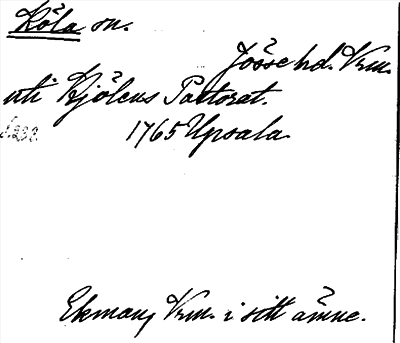 Köla sn.
Jösse hd. Vrm.
uti Kjölens Pastorat.
1765 Upsala
s. 232
Ekman, Vrm. i sitt ämne.